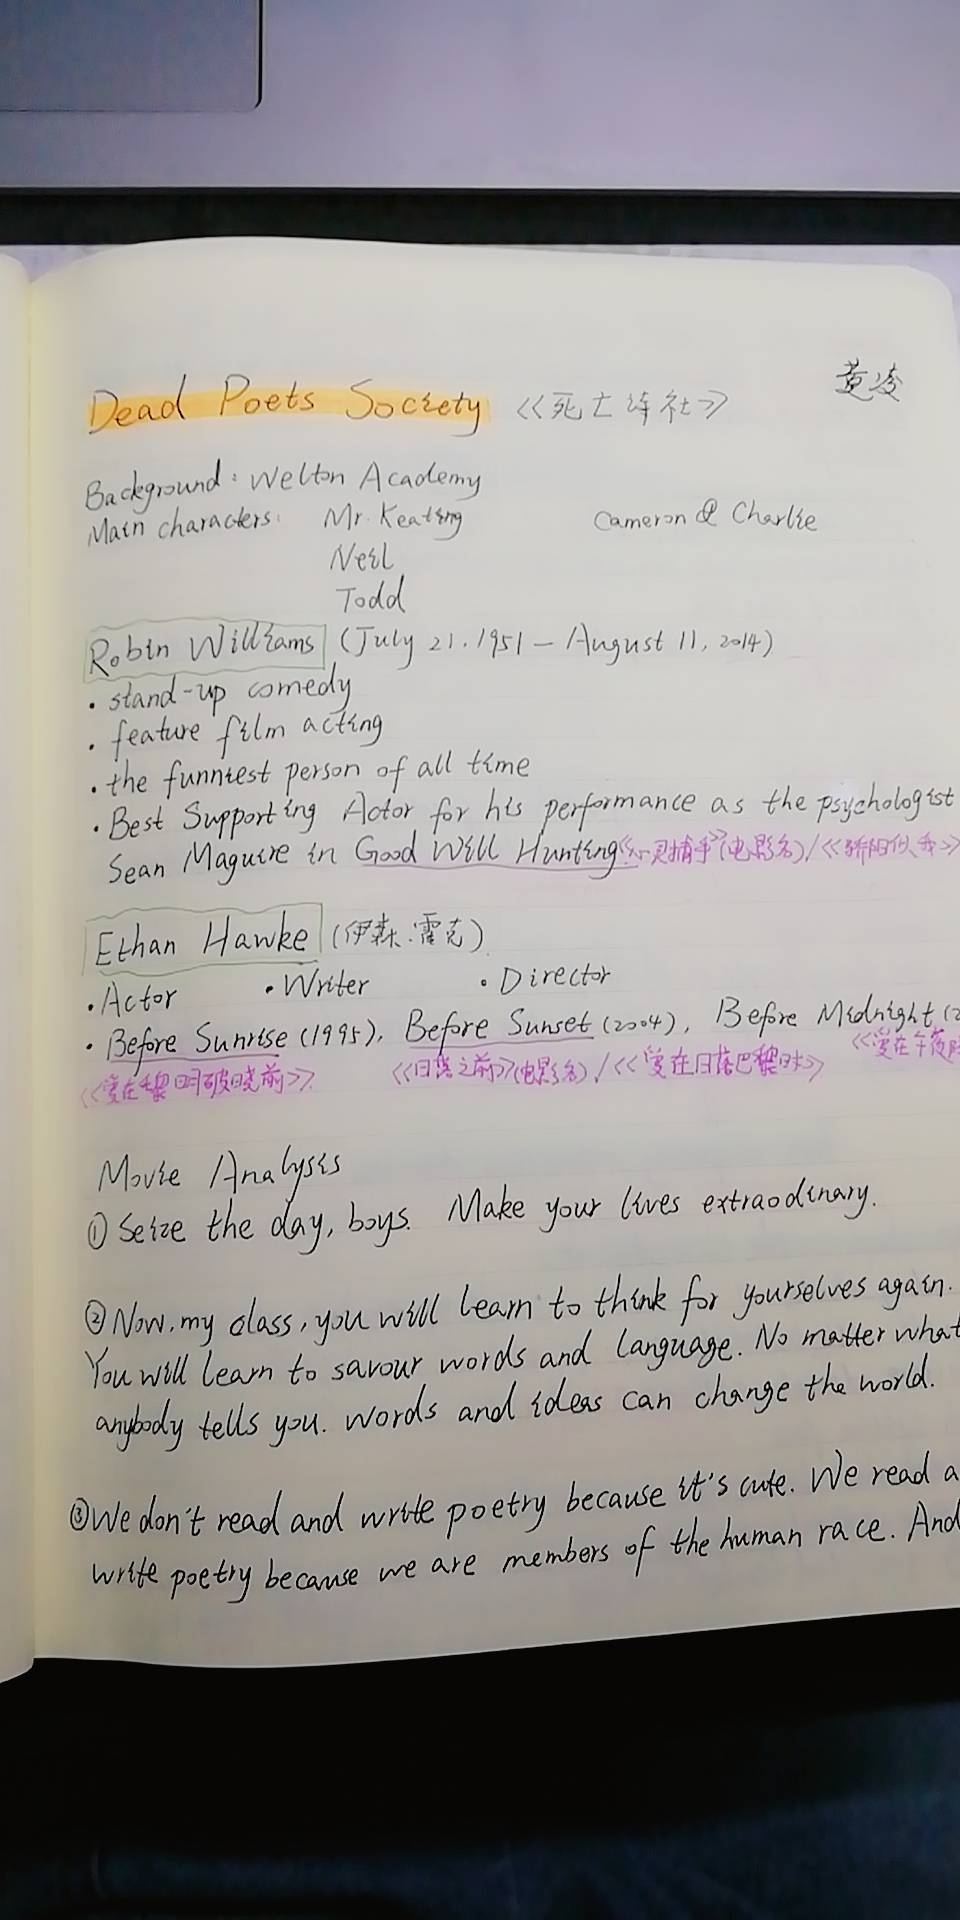 黄凌
Dead Poets Society 《死亡诗社》
Background: Welton Academy
Main characters: Mr. Keating Cameron & Charlie
Neil
Todd
Robin Williams (July 21, 1951 – August 11, 2014)
· stand-up comedy
· feature film acting
· the funniest person of all time
· Best Supporting Actor for his performance as the psychologist
Sean Maguire in Good Will Hunting《心灵捕手》(电影名)/《骄阳似我》
Ethan Hawke (伊森·霍克)
· Actor · Writer · Director
· Before Sunrise (1995), Before Sunset (2004), Before Midnight (2
《爱在黎明破晓前》 《日落之前》(电影名)/《爱在日落巴黎时》 《爱在午夜
Movie Analysis
① Seize the day, boys. Make your lives extraodinary.
② Now, my class, you will learn to think for yourselves again.
You will learn to savour words and language. No matter what
anybody tells you. Words and ideas can change the world.
③ We don't read and write poetry because it's cute. We read a
write poetry because we are members of the human race. And